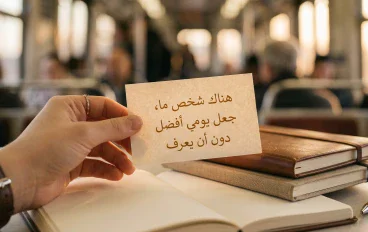 هناك شخص ما،
جعل يومي أفضل
دون أن يعرف